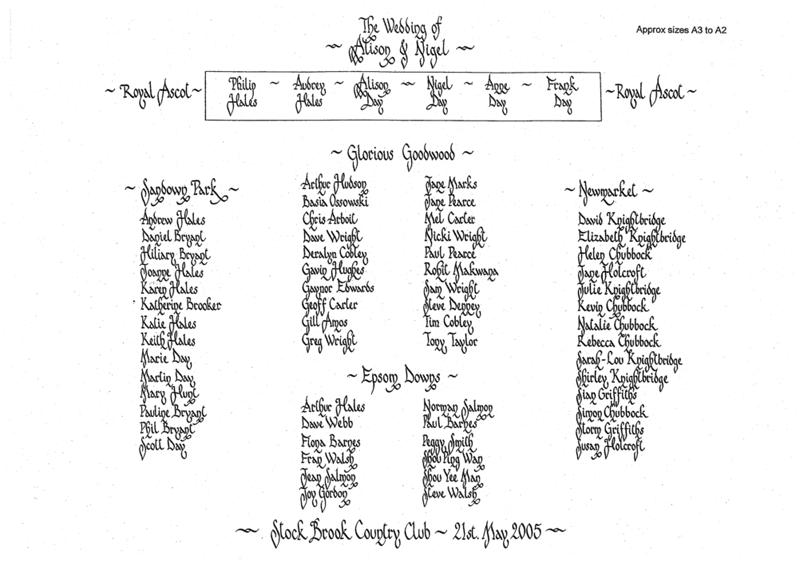 The Wedding of
Approx sizes A3 to A2
~ Alison & Nigel ~
~ Royal Ascot ~
Philip Hales ~ Audrey Hales ~ Alison Day ~ Nigel Day ~ Anne Day ~ Frank Day
~ Royal Ascot ~
~ Glorious Goodwood ~
Arthur Hudson
Basia Ossowski
Chris Arboit
Dave Wright
Deralyn Cobley
Gavin Hughes
Gaynor Edwards
Geoff Carter
Gill Amos
Greg Wright
Jane Marks
Jane Pearce
Mel Carter
Nicki Wright
Paul Pearce
Rohit Makwana
Sam Wright
Steve Denney
Tim Cobley
Tony Taylor
~ Sandown Park ~
Andrew Hales
Daniel Bryant
Hiliary Bryant
Joanne Hales
Karen Hales
Katherine Brooker
Katie Hales
Keith Hales
Marie Day
Martin Day
Mary Hunt
Pauline Bryant
Phil Bryant
Scott Day
~ Newmarket ~
David Knightbridge
Elizabeth Knightbridge
Helen Chubbock
Jane Holcroft
Julie Knightbridge
Kevin Chubbock
Natalie Chubbock
Rebecca Chubbock
Sarah-Lou Knightbridge
Shirley Knightbridge
Sian Griffiths
Simon Chubbock
Storm Griffiths
Susan Holcroft
~ Epsom Downs ~
Arthur Hales
Dave Webb
Fiona Barnes
Fran Walsh
Jean Salmon
Joy Gordon
Norman Salmon
Paul Barnes
Peggy Smith
Shou Ping Wan
Shou Yee Man
Steve Walsh
~ Stock Brook Country Club ~ 21st. May 2005 ~